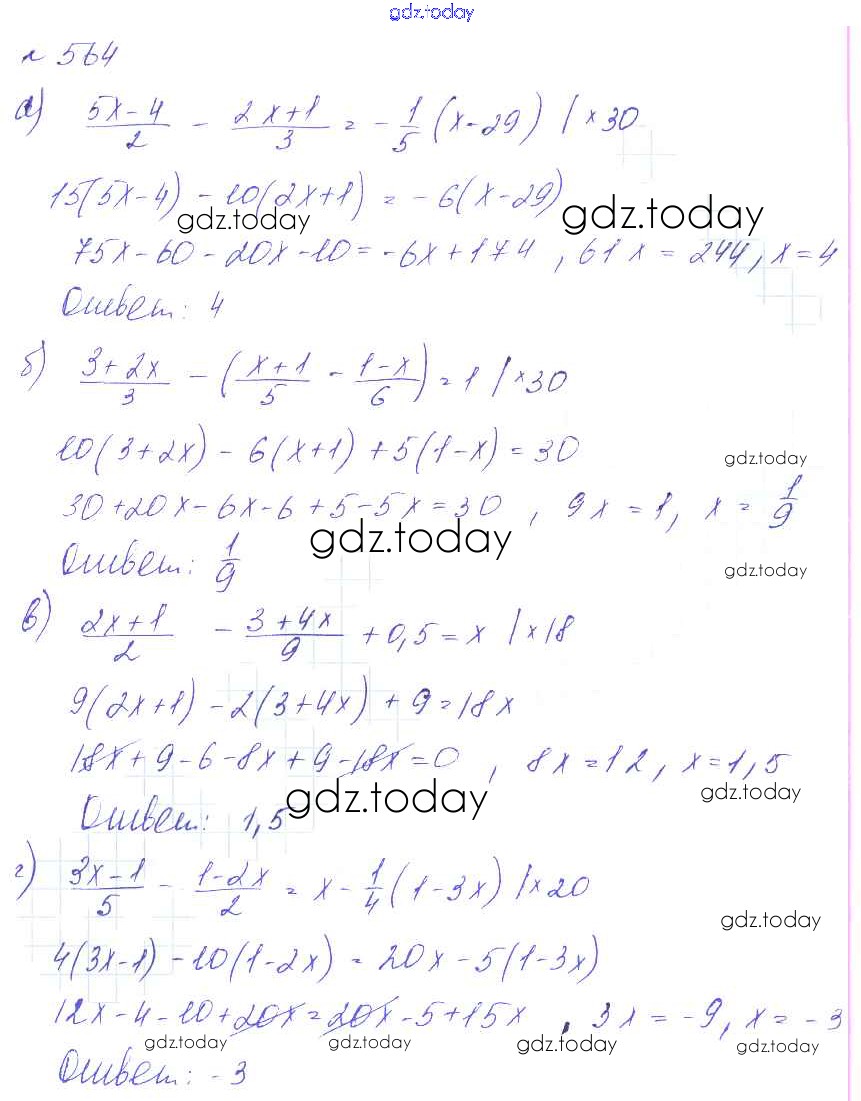 gdz.today
№ 564
а) (5x-4)/2 - (2x+1)/3 = -1/5 (x-29) | ×30
15(5x-4) - 10(2x+1) = -6(x-29)
gdz.today gdz.today
75x-60-20x-10=-6x+174, 61x = 244, x=4
Ответ: 4
б) (3+2x)/3 - ((x+1)/5 - (1-x)/6) = 1 | ×30
10(3+2x) - 6(x+1) + 5(1-x) = 30
gdz.today
30+20x-6x-6+5-5x=30, 9x=1, x = 1/9
gdz.today
Ответ: 1/9
gdz.today
в) (2x+1)/2 - (3+4x)/9 + 0,5 = x | ×18
9(2x+1) - 2(3+4x) + 9 = 18x
18x+9-6-8x+9-18x=0, 8x=12, x=1,5
gdz.today gdz.today
Ответ: 1,5
г) (3x-1)/5 - (1-2x)/2 = x - 1/4 (1-3x) | ×20
gdz.today
4(3x-1) - 10(1-2x) = 20x - 5(1-3x)
12x-4-10+20x=20x-5+15x, 3x = -9, x = -3
gdz.today gdz.today gdz.today gdz.today
Ответ: -3